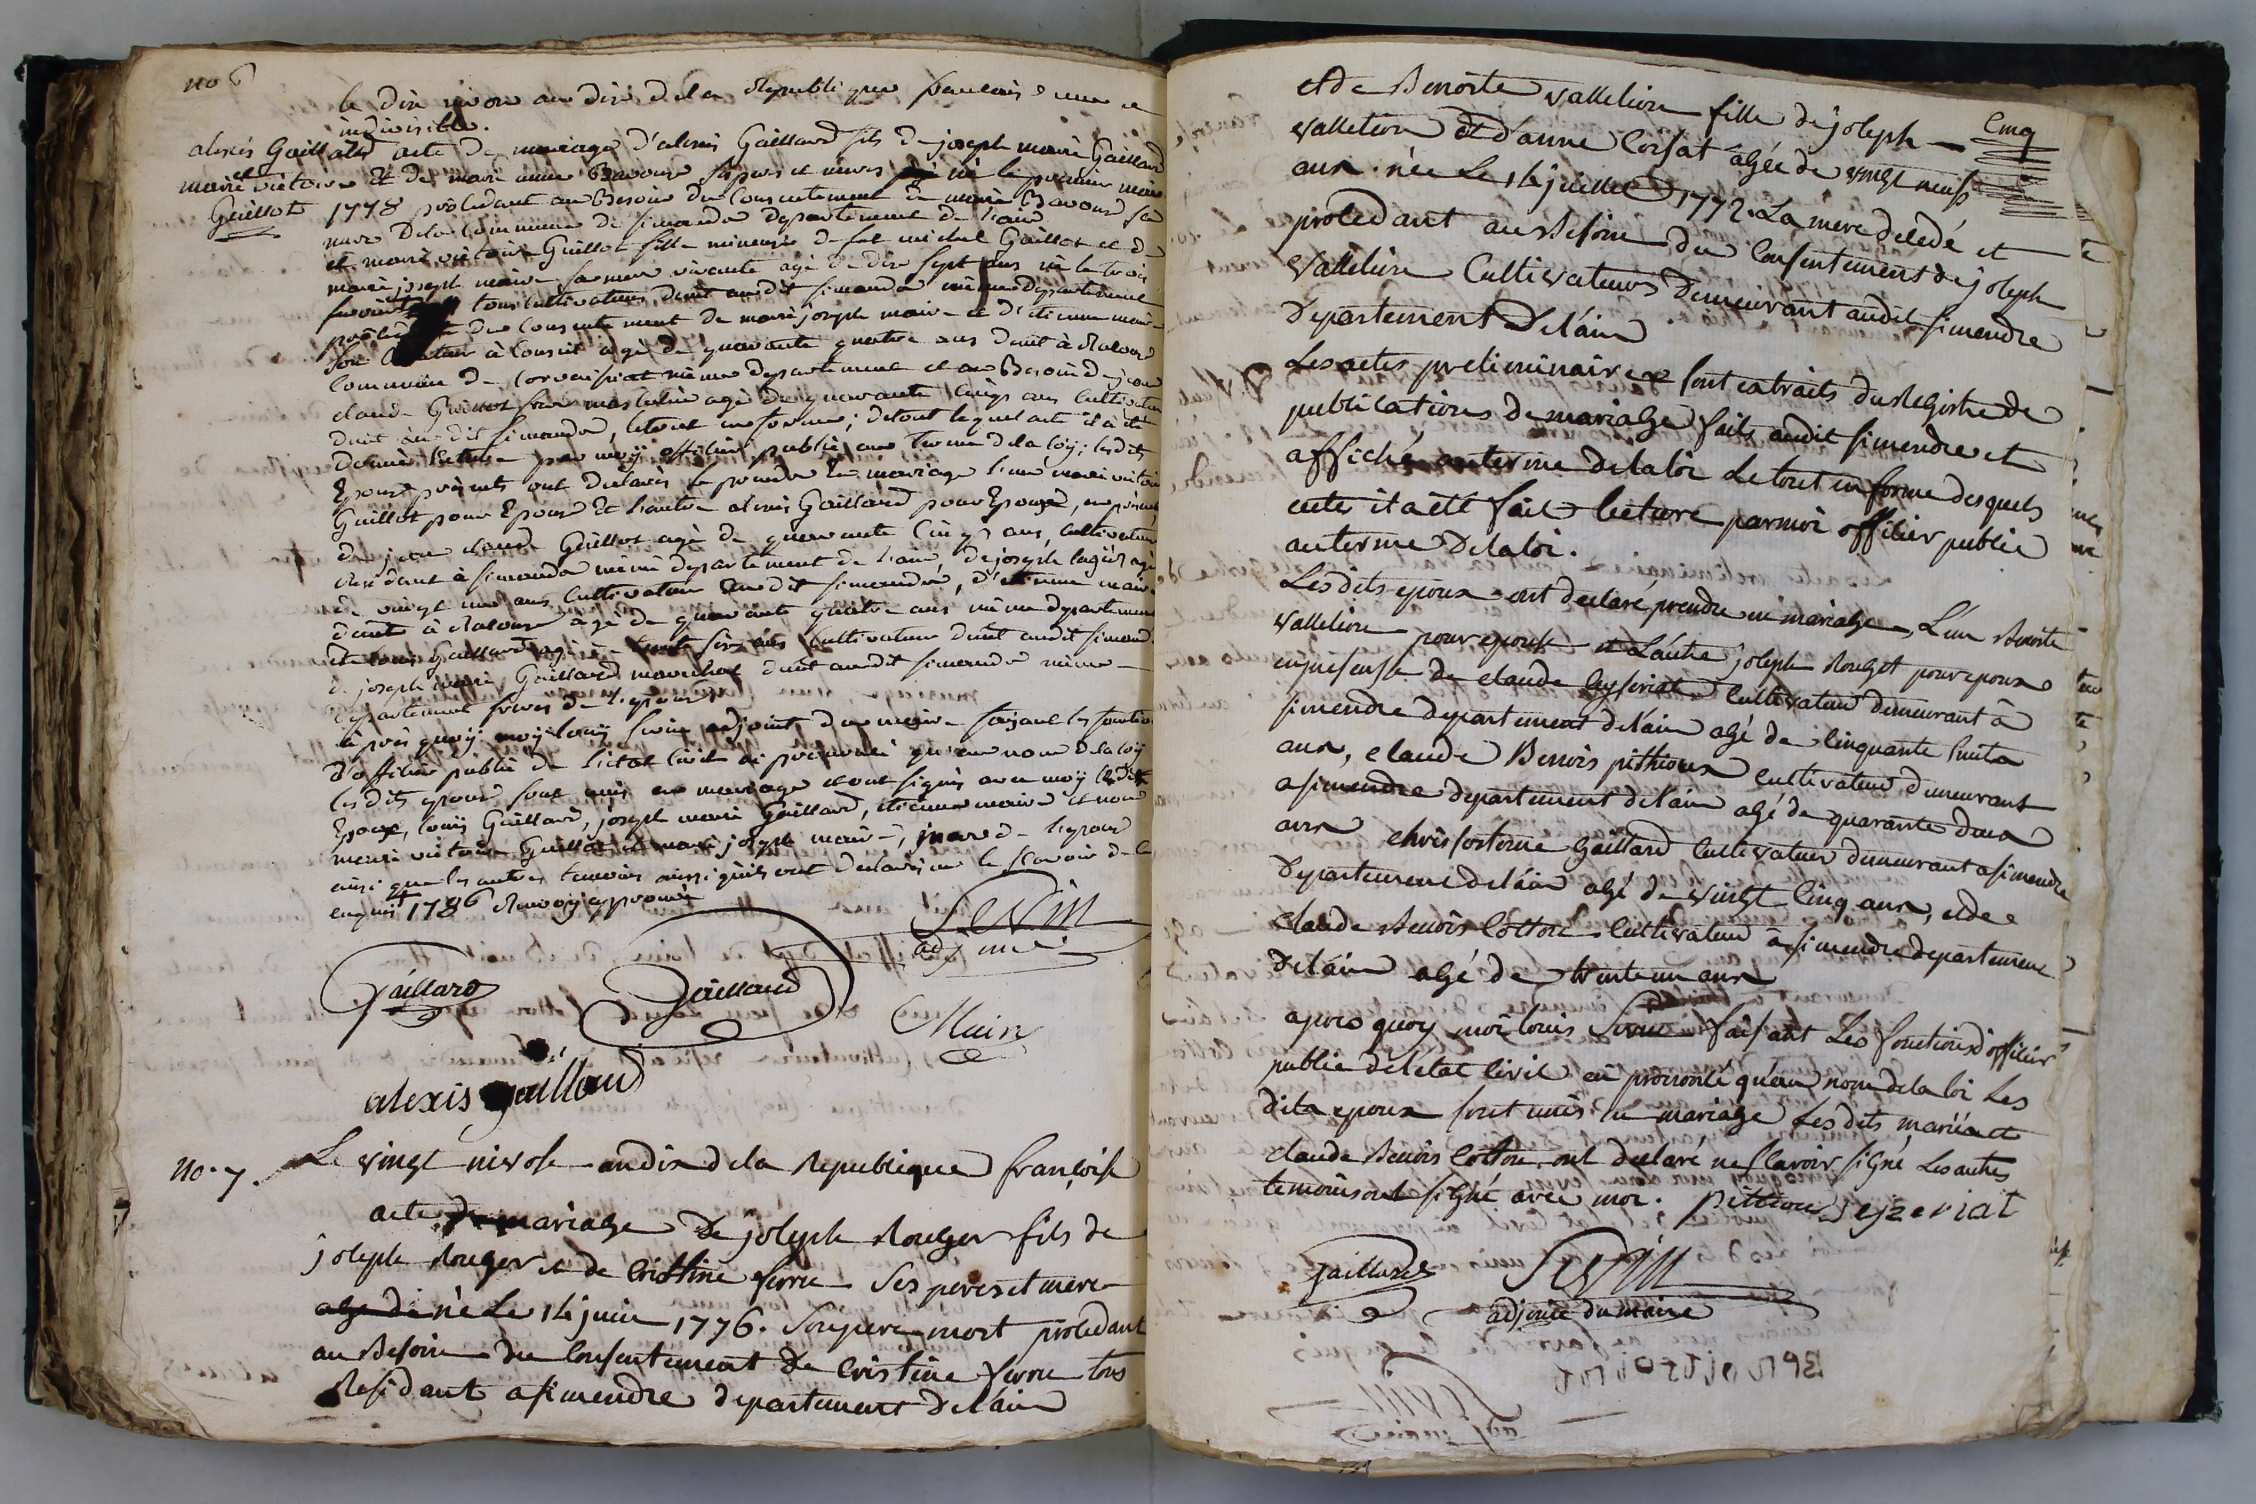 no 6
le dix nivose an dix de la Republique francaise une et
indivisible.
alexis Gaillard acte de mariage d'alexis Gaillard fils de joseph marie Gaillard
et
marie victoire et de marie anne Bavoux ses peres et meres né le premier mars
Guillot 1778 procedant au Besoin du consentement de marie Bavoux sa
mere de la commune de simandre departement de l'ain
et marie victoire Guillot fille mineure de feu michel Guillot et de
marie joseph maire sa mere vivante agé de dix sept ans né le trois
tous cultivateurs dmt audit simandre même departement
du consentement de marie joseph maire et d'etienne maire
son à conseil agé de quarante quatre ans dmt à
commune de corveissiat même departement et au Besoin de jean
claude Guillot agé de quarante cinq ans cultivateur
dmt au dit simandre, le tout en forme; de tout lequel acte il a été
donné lecture par moy officier public au terme de la loy; les dits
Epoux présents ont declarés prendre en mariage l'une marie victoire
Guillot pour Epoux Et l'autre alexis Gaillard pour Epouse, en présence
de jean claude Guillot agé de quarante cinq ans, cultivateur
residant à simandre même departement de l'ain, de joseph agé
de vingt un ans cultivateur audit simandre, d'etienne maire
dmt à agé de quarante quatre ans même departement
de louis Gaillard agé de trente six ans cultivateur dmt audit simandre
de joseph marie Gaillard marechal dmt audit simandre même
departement freres de l'epoux
après quoy moy louis sevin adjoint du maire faisant les fonctions
d'officier public de l'etat civil ai prononcé qu'au nom de la loy
les dits epoux sont unis en mariage et ont signés avec moy les dits
Epoux, louis Gaillard, joseph marie Gaillard, etienne maire et non
marie victoire Guillot et marie joseph maire, de l'epoux
ainsi que les autres temoins aussi qu'ils ont declarés ne le scavoir de ce
enquis 1786 Renvoy approuvé
Sevin
adjoint
Gaillard Gaillard
Maire
alexis gaillard
no. 7. Le vingt nivose an dix de la Republique francoise
acte de mariage de joseph Rouget fils de
joseph Rouget et de cristine ses peres et mere
age de né Le 14 juin 1776. Son pere mort procedant
au Besoin du Consentement de Cristine tous
Residant a simendre departement de l'ain
cinq
et de Benoite vallelion fille de joseph
vallelion et d'anne Corsat agée de vingt neuf
ans. née Le 14 juillet 1772. La mere decedé et
procedant au Besoin du Consentement de joseph
vallelion Cultivateurs demeurant audit simendre
departement de l'ain
Les actes preliminaires sont extraits du Registre de
publications de mariage faits audit simendre et
affiché au terme de la loi le tout en forme desquels
acte il a été fait lecture par moi officier public
au terme de la loi.
Les dits epoux ont declaré prendre en mariage, L'un Benoite
vallelion pour epouse et L'autre joseph Rouget pour epoux
en presence de claude Cultivateur demeurant à
simendre departement de l'ain agé de cinquante huit
ans, claude Benois pithion cultivateur demeurant
a simendre departement de l'ain agé de quarante deux
ans chrisostome Gaillard cultivateur demeurant a simendre
departement de l'ain agé de vingt cinq ans, et de
claude Benois Cotton cultivateur à simendre departement
de l'ain agé de trente un ans
apres quoy moi louis Sevin faisant Les fonctions d'officier
public de l'etat civil ai prononcé qu'au nom de la loi Les
dits epoux sont unis en mariage Les dits mariés et
claude Benois Cotton ont declaré ne scavoir signé Les autres
temoins ont signé avec moi. pithion Sejzeriat
Gaillard Sevin
adjoint du maire